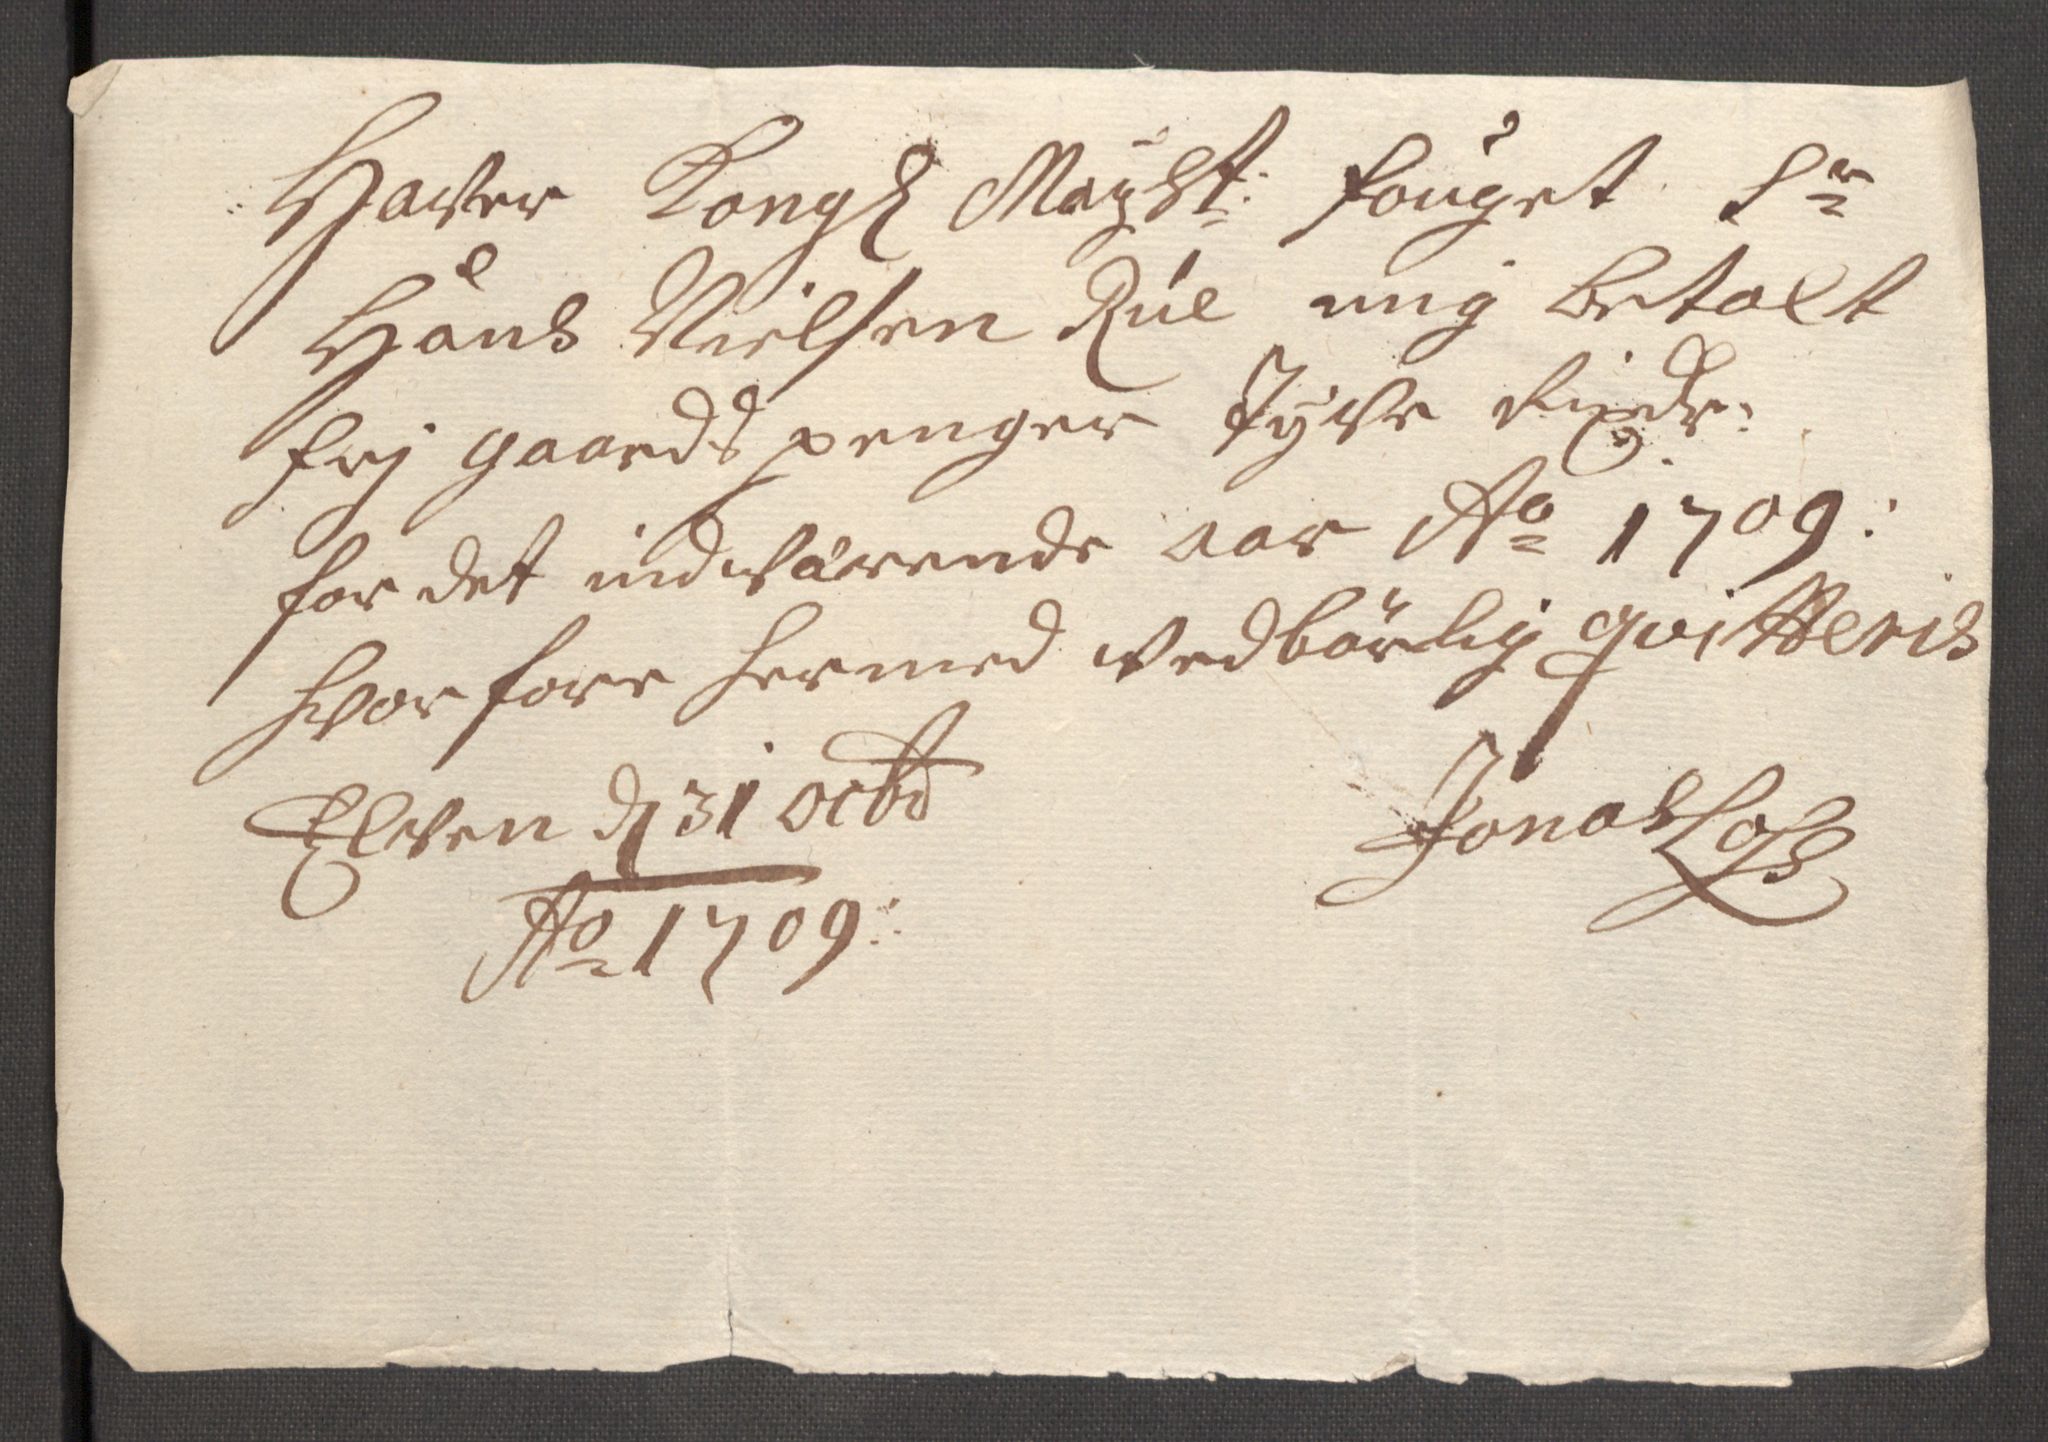 Hafver Kongl Mayst: fouget Sr
Hans Nielsen Rúe mig betalt
frj gaards penger Tyve Rixdr:
for det indværende aar Ao 1709:
hvorfore hermed vedbørlig qvitteris
Elven d 31 octbr
Ao 1709:
Jonas Loss